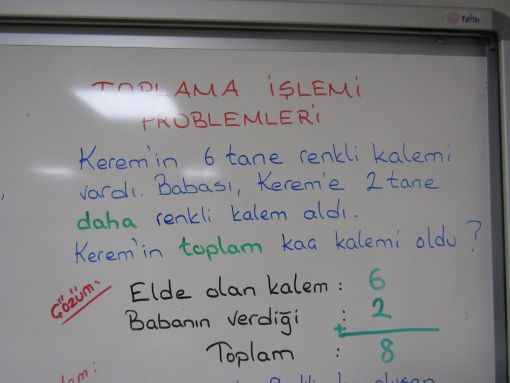 fatih
TOPLAMA İŞLEMİ
PROBLEMLERİ
Kerem'in 6 tane renkli kalemi
vardı. Babası, Kerem'e 2 tane
daha renkli kalem aldı.
Kerem'in toplam kaç kalemi oldu?
ÇÖZÜM:
Elde olan kalem : 6
Babanın verdiği : 2
+
Toplam : 8